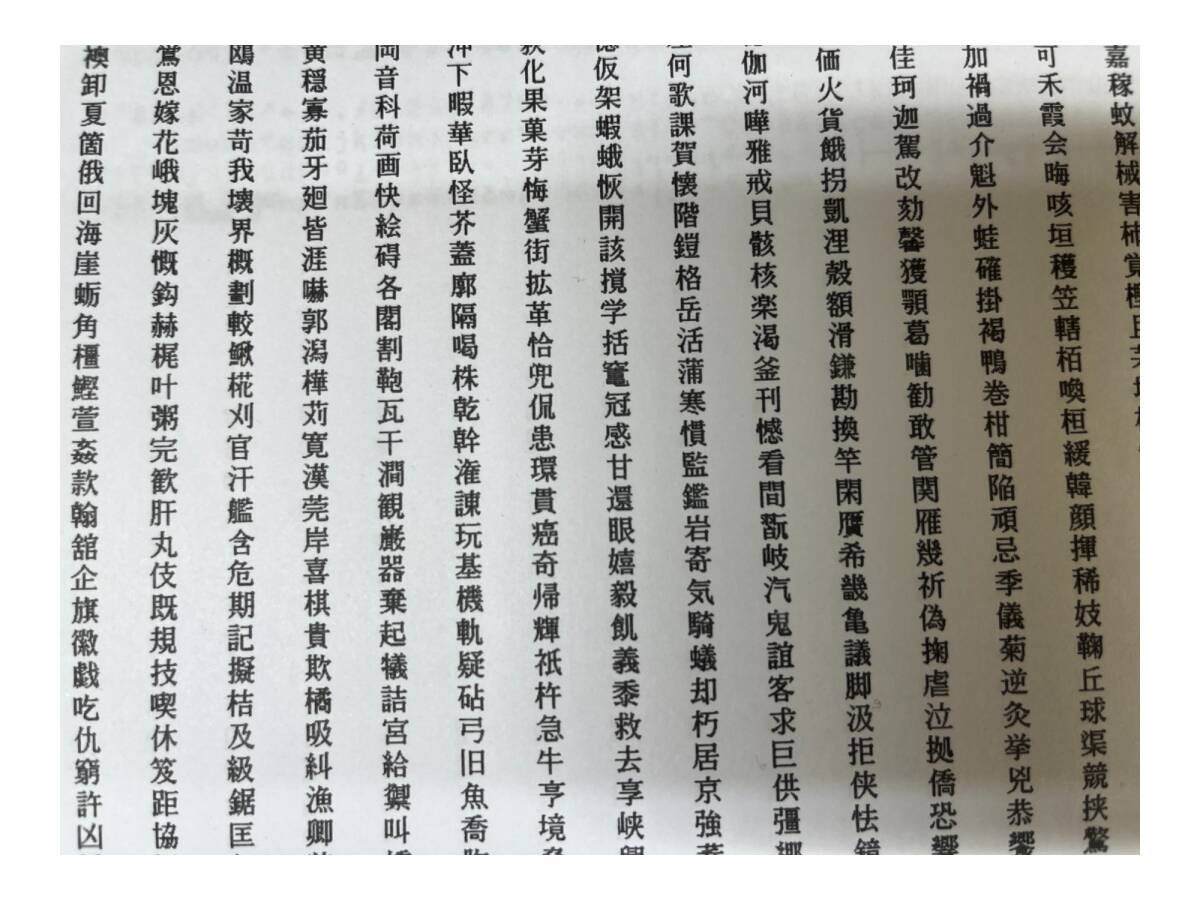 襖鴬鴎黄岡沖荻億
卸恩温穏音下化仮何伽価佳加可嘉
夏嫁家寡科暇果架歌河火珂禍禾稼
箇花苛茄荷華菓蝦課嘩貨迦過霞蚊
俄峨我牙画臥芽蛾賀雅餓駕介会解
回塊壊廻快怪悔恢懐戒拐改魁晦械
海灰界皆絵芥蟹開階貝凱劾外咳害
崖慨概涯碍蓋街該鎧骸浬馨蛙垣柿
蛎鈎劃嚇各廓拡撹格核殻獲確穫覚
角赫較郭閣隔革学岳楽額顎掛笠樫
橿梶鰍潟割喝恰括活渇滑葛褐轄且
鰹叶椛樺鞄株兜竃蒲釜鎌噛鴨栢茅
萱粥刈苅瓦乾侃冠寒刊勘勧巻喚
姦完官寛干幹患感慣憾換敢柑桓
款歓汗漢澗潅環甘監看竿管簡緩
翰肝艦莞観諌貫還鑑間閑関陥韓
舘丸含岸巌玩癌眼岩翫贋雁頑顔
企伎危喜器基奇嬉寄岐希幾忌揮
旗既期棋棄機帰毅気汽畿祈季稀
徽規記貴起軌輝飢騎鬼亀偽儀妓
戯技擬欺犠疑祇義蟻誼議掬菊鞠
吃喫桔橘詰砧杵黍却客脚虐逆丘
仇休及吸宮弓急救朽求汲泣灸球
窮笈級糾給旧牛去居巨拒拠挙渠
許距鋸漁禦魚亨享京供侠僑兇競
凶協匡卿叫喬境峡強彊怯恐恭挟
鏡響饗驚